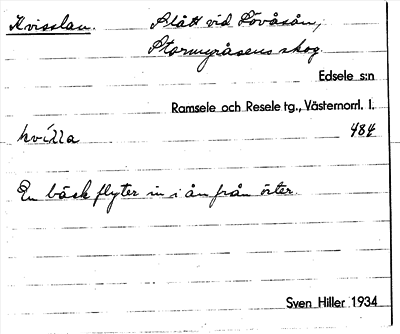 Kvisslan. Slått vid Tovåsån,
Stormyråsens skog.
Edsele s:n
Ramsele och Resele tg., Västernorrl. l.
484
En bäck flyter in i ån från öster.
Sven Hiller 1934